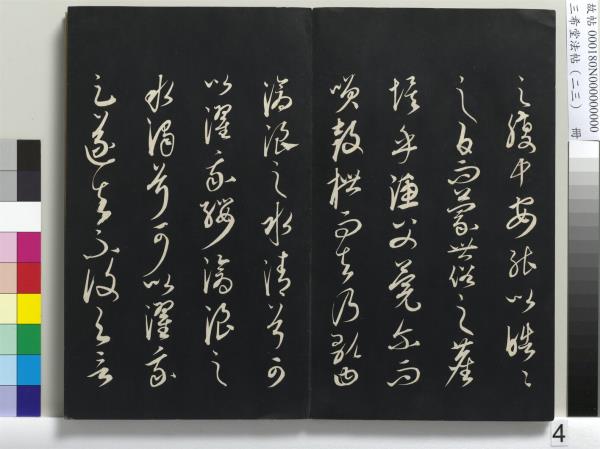 故帖 000180N000000000
三希堂法帖（二三） 冊
之腹中安能以皓〻
之白而蒙世俗之塵
埃乎漁父莞尔而
笑鼓枻而去乃歌曰
滄浪之水清兮可
以濯我纓滄浪之
水濁兮可以濯我
足遂去不復與言
4